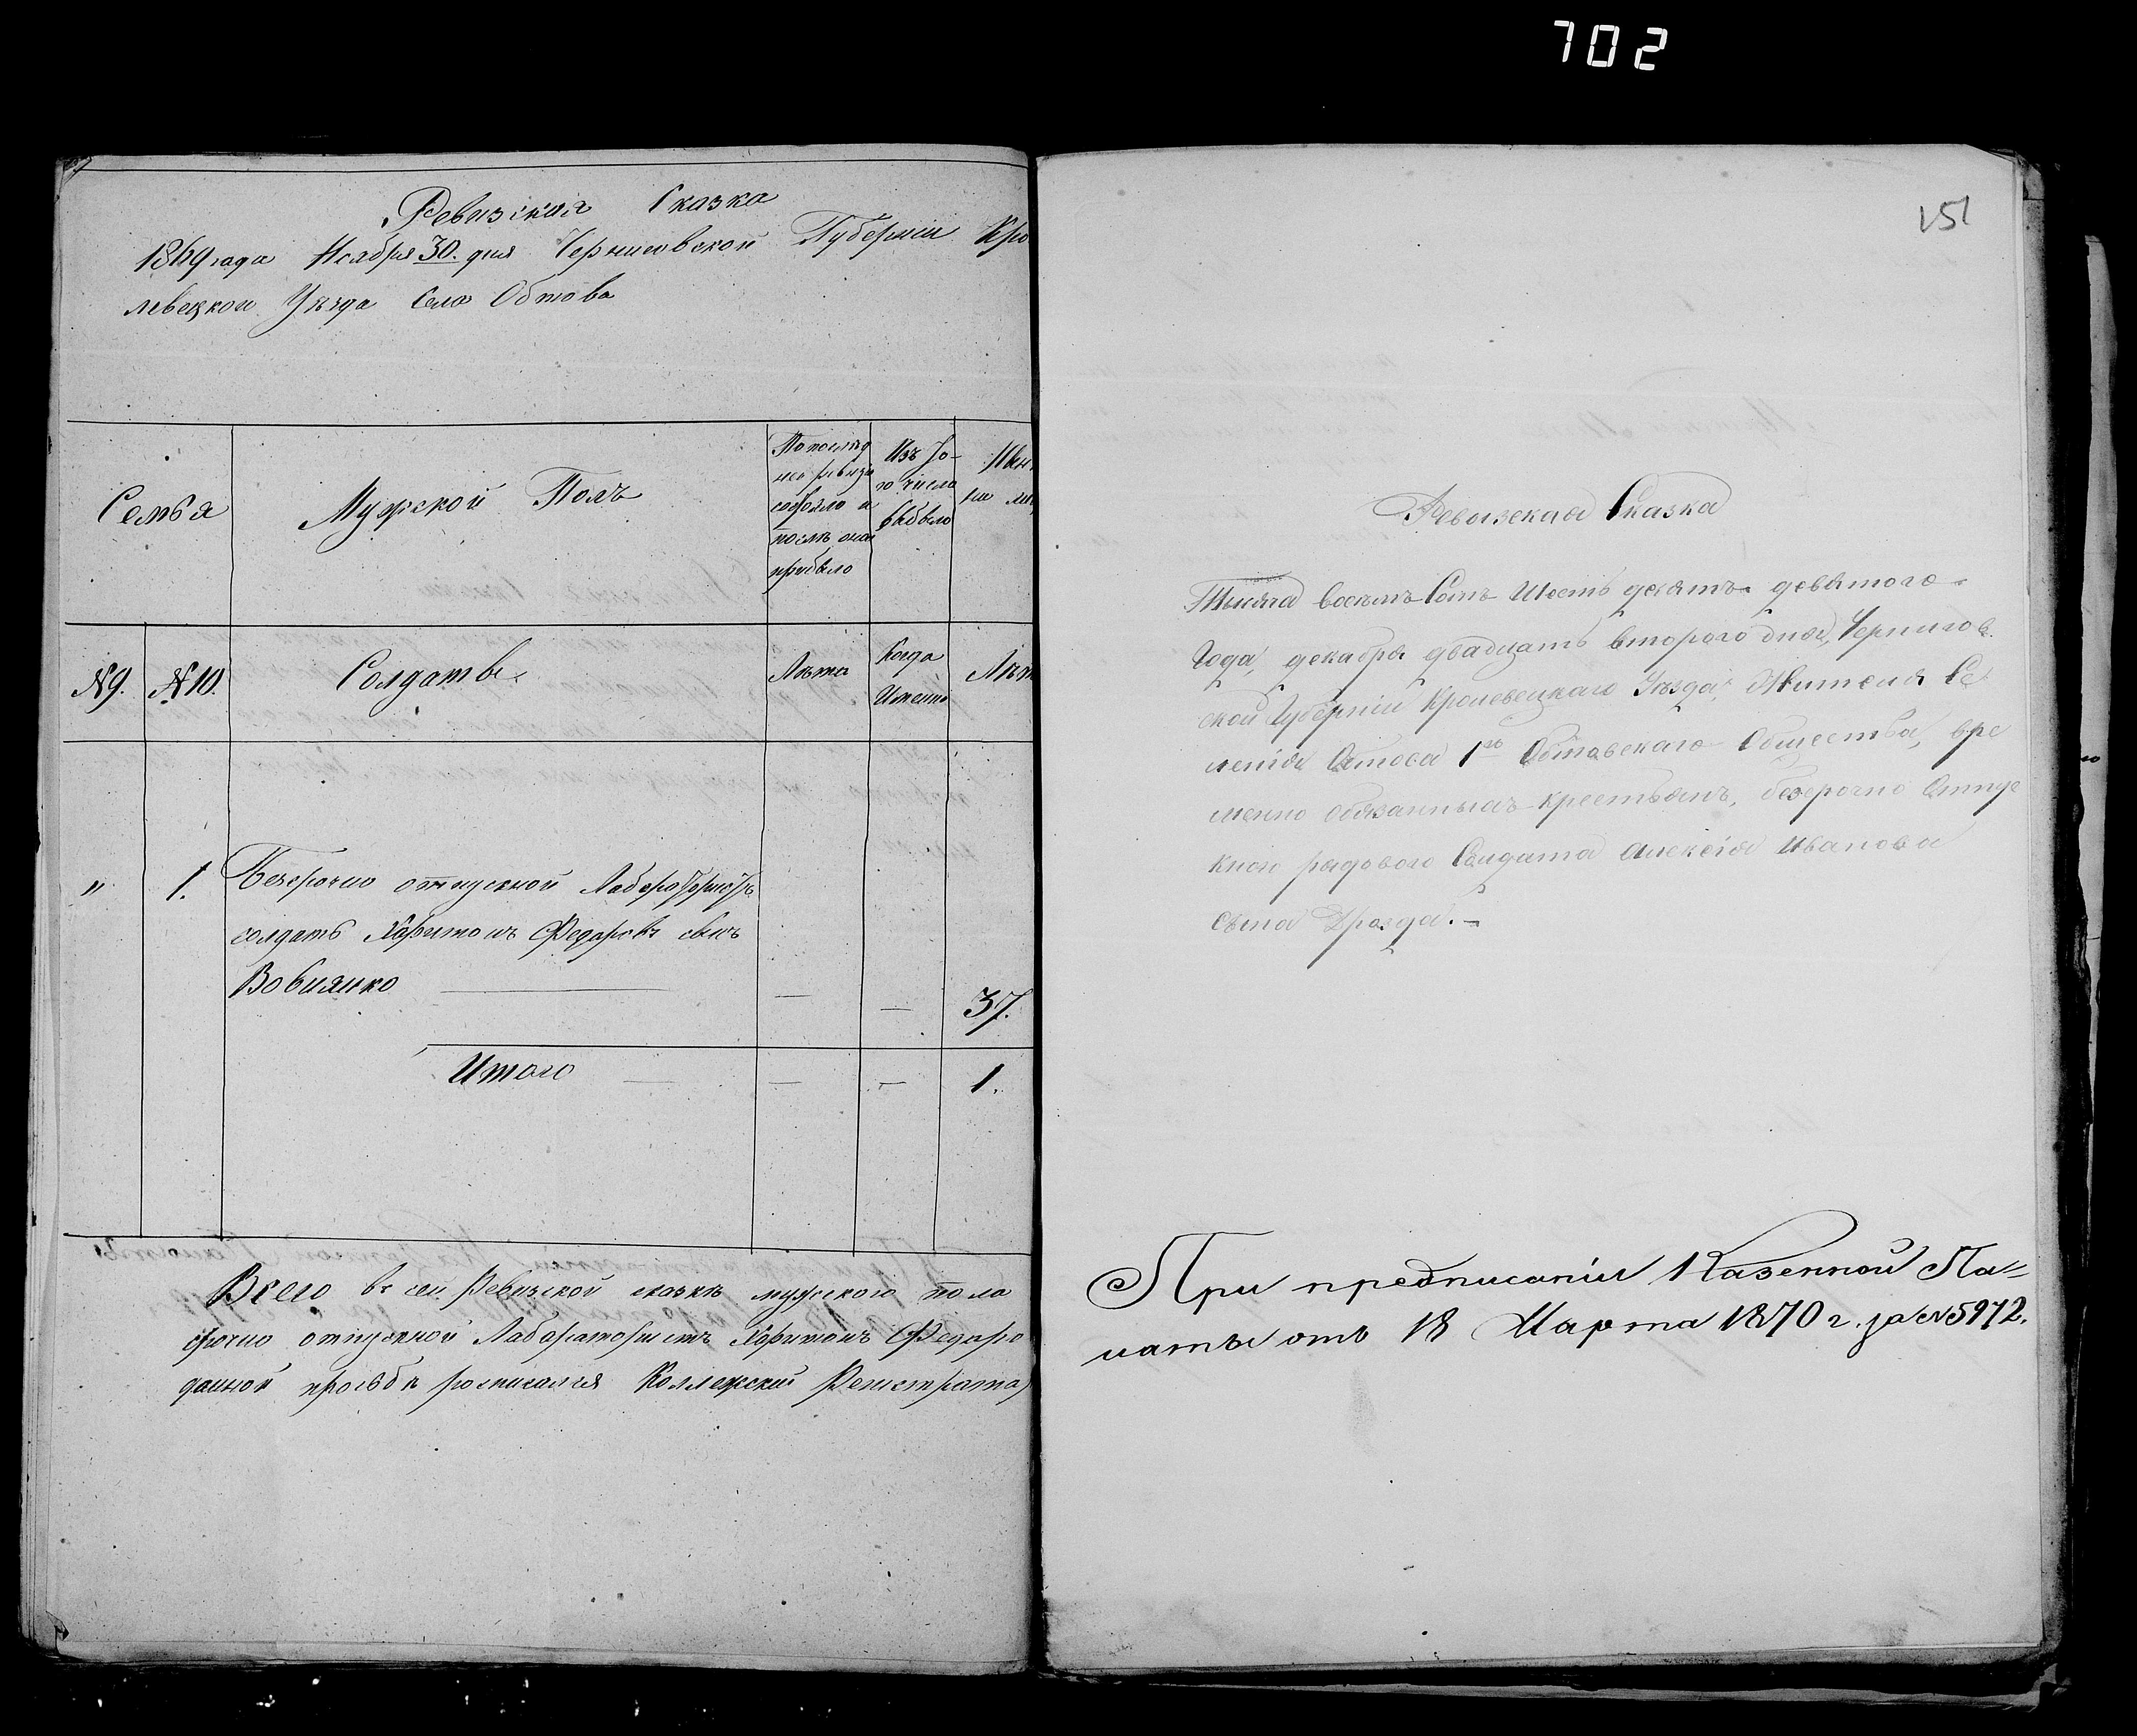 702
Ревизская Сказка
1869 года Ноября 30. дня Черниговской Губернии Кро
левецкой Уѣзда Села Обтова
Семья
Мужской Полъ
По послѣд
ней ревизіи
состояло и
послѣ оной
прибыло
Изъ то-
го числа
выбыло
Нын
N 9.
N 10.
Солдаты.
Лѣта
Когда
Именно
Лѣт
"
1.
Безсрочно отпускной Лаборатористъ
солдатъ Харитонъ Федоровъ сынъ
Вовнянко — — — 37.
Итого — — — 1.
Всего въ сей Ревизской сказкѣ мужского пола
срочно отпускной Лаборатористъ Харитонъ Федоро
данной прозьбѣ росписался Коллежский Регистрато
151
Ревизская Сказка
Тысяча восемъ Сотъ Шесть десятъ девятого
Года, декабря двадцать второго дня, Чернигов.
ской Губерніи Кролевецкаго Уѣзда, Жителя Се
ленія Обтова 1го Обтовскаго Общества, вре
менно обязанныхъ крестьянъ, безсрочно Отпус
кного рядового Солдата Алексія Иванова
Сына Дрозда. —
При предписаніи Казенной Па=
латы отъ 18 Марта 1870 г. за № 5972.